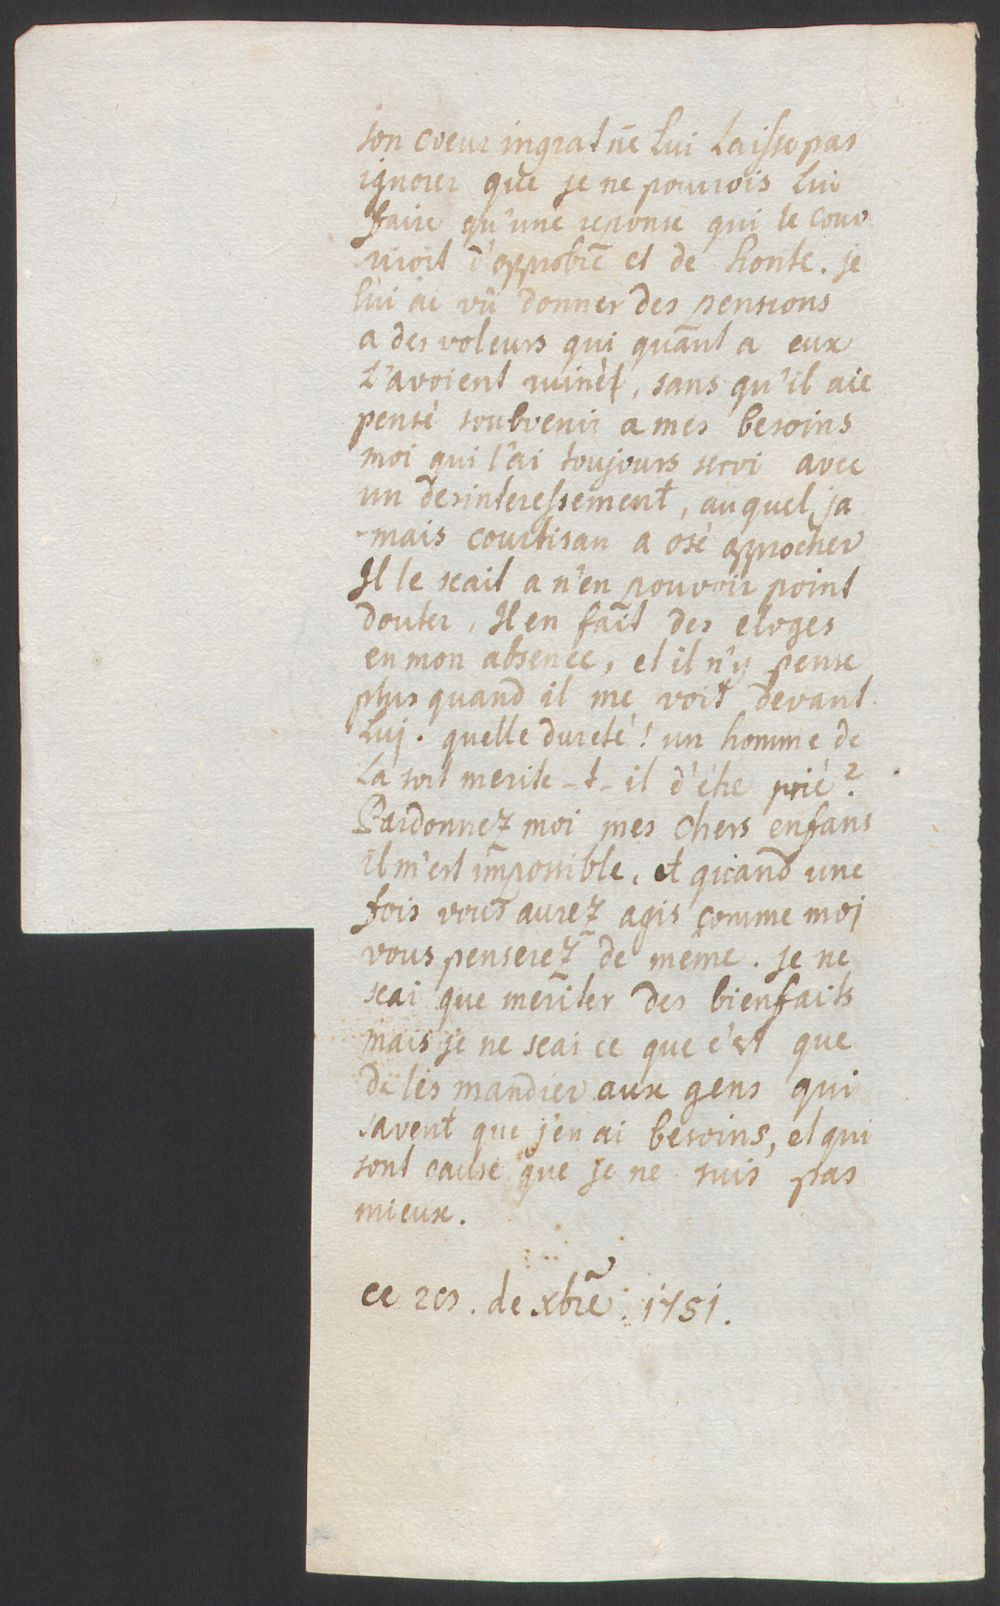 son coeur ingrat ne lui laisse pas
ignorer que je ne pourrois lui
faire qu'une reponse qui le cou
vriroit d'opprobre et de honte. je
lui ai vû donner des pensions
a des voleurs qui quant a eux
l'avoient ruinét, sans qu'il aie
pensé soubvenir a mes besoins
moi qui l'ai toujours servi avec
un desinteressement, auquel ja
-mais courtisan a osé approcher
Il le scait a n'en pouvoir point
douter, Il en fait des eloges
en mon absence, et il n'y pense
plus quand il me voit devant
Luy. quelle dureté! un homme de
La sort merite-t-il d'étre prié?
Pardonnez moi mes chers enfans
il m'est impossible, et quand une
fois vous aurez agis comme moj
vous penserez de même. je ne
scai que meriter des bienfaits
mais je ne scai ce que c'est que
de les mandier aux gens qui
savent que j'en ai besoins, et qui
sont cause que je ne suis pas
mieux.
ce de xbre. 1751.